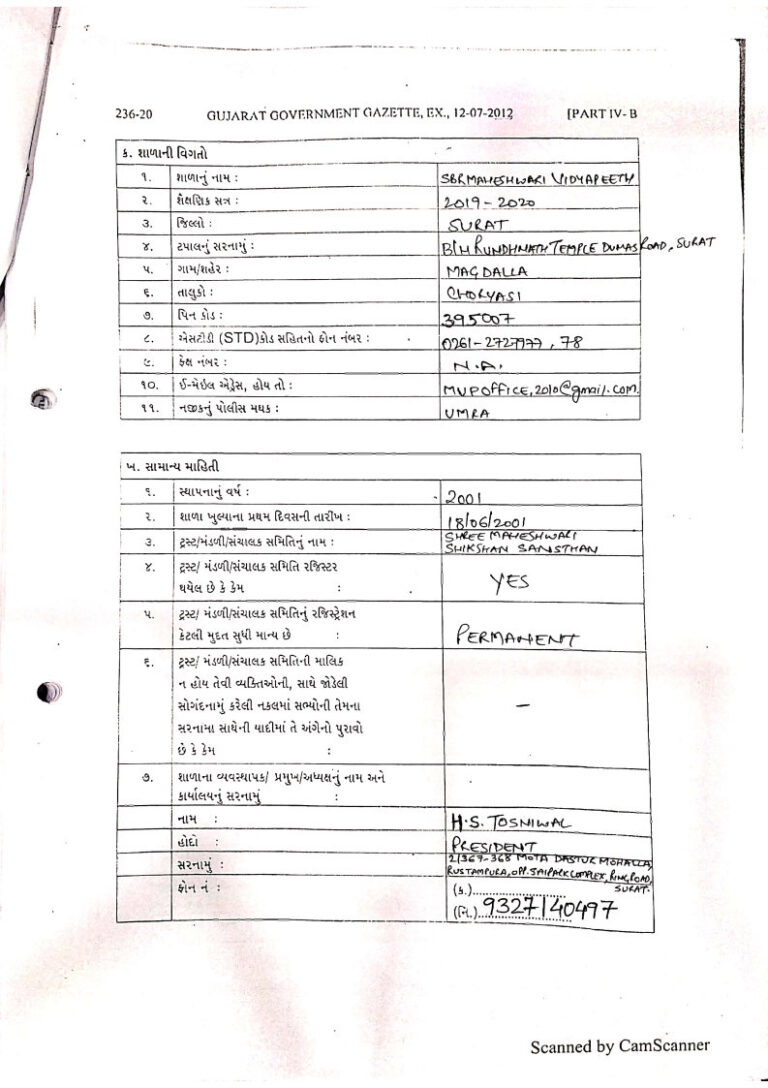 236-20 GUJARAT GOVERNMENT GAZETTE, EX., 12-07-2012 [PART IV- B
ક. શાળાની વિગતો
૧. શાળાનું નામ : SBRMAHESHWARI VIDYAPEETH
૨. શૈક્ષણિક સત્ર : 2019-2020
૩. જિલ્લો : SURAT
૪. ટપાલનું સરનામું : B/H RUNDHNATH TEMPLE DUMAS ROAD, SURAT
૫. ગામ/શહેર : MAGDALLA
૬. તાલુકો : CHORYASI
૭. પિન કોડ : 395007
૮. એસટીડી (STD)કોડ સહિતનો ફોન નંબર : 0261-2727977, 78
૯. ફેક્ષ નંબર : N.A.
૧૦. ઈ-મેઇલ એડ્રેસ, હોય તો : MVPOFFICE,2010@gmail.com.
૧૧. નજીકનું પોલીસ મથક : UMRA
ખ. સામાન્ય માહિતી
૧. સ્થાપનાનું વર્ષ : 2001
૨. શાળા ખુલ્યાના પ્રથમ દિવસની તારીખ : 18/06/2001
૩. ટ્રસ્ટ/મંડળી/સંચાલક સમિતિનું નામ : SHREE MAHESHWARI
SHIKSHAN SANSTHAN
૪. ટ્રસ્ટ/ મંડળી/સંચાલક સમિતિ રજિસ્ટર
થયેલ છે કે કેમ : YES
૫. ટ્રસ્ટ/ મંડળી/સંચાલક સમિતિનું રજિસ્ટ્રેશન
કેટલી મુદત સુધી માન્ય છે : PERMANENT
૬. ટ્રસ્ટ/ મંડળી/સંચાલક સમિતિની માલિક
ન હોય તેવી વ્યક્તિઓની, સાથે જોડેલી
સોગંદનામું કરેલી નકલમાં સભ્યોની તેમના
સરનામા સાથેની યાદીમાં તે અંગેનો પુરાવો –
છે કે કેમ :
૭. શાળાના વ્યવસ્થાપક/ પ્રમુખ/અધ્યક્ષનું નામ અને
કાર્યાલયનું સરનામું :
નામ : H.S. TOSNIWAL
હોદો : PRESIDENT
સરનામું : 2/367-368 MOTA DASTUR MOHALLA,
RUSTAMPURA, OPP. JAIPARK COMPLEX, RING ROAD,
SURAT.
ફોન નં : (ક.)....................
(નિ.) 9327140497
Scanned by CamScanner